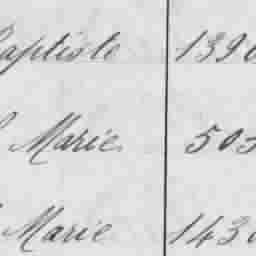 aptiste 1390
Marie 505
Marie 1430